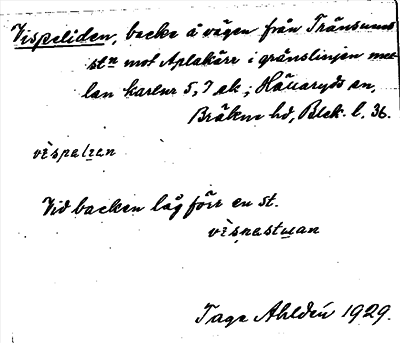 Vispeliden, backe å vägen från Tränsums
stn mot Aplakärr i gränslinjen mel-
lan kartor 5, 7 ek; Hällaryds sn,
Bräkne hd, Blek. l. 36.
vispelien
Vid backen låg förr en st.
vispestuan
Tage Ahldén 1929.